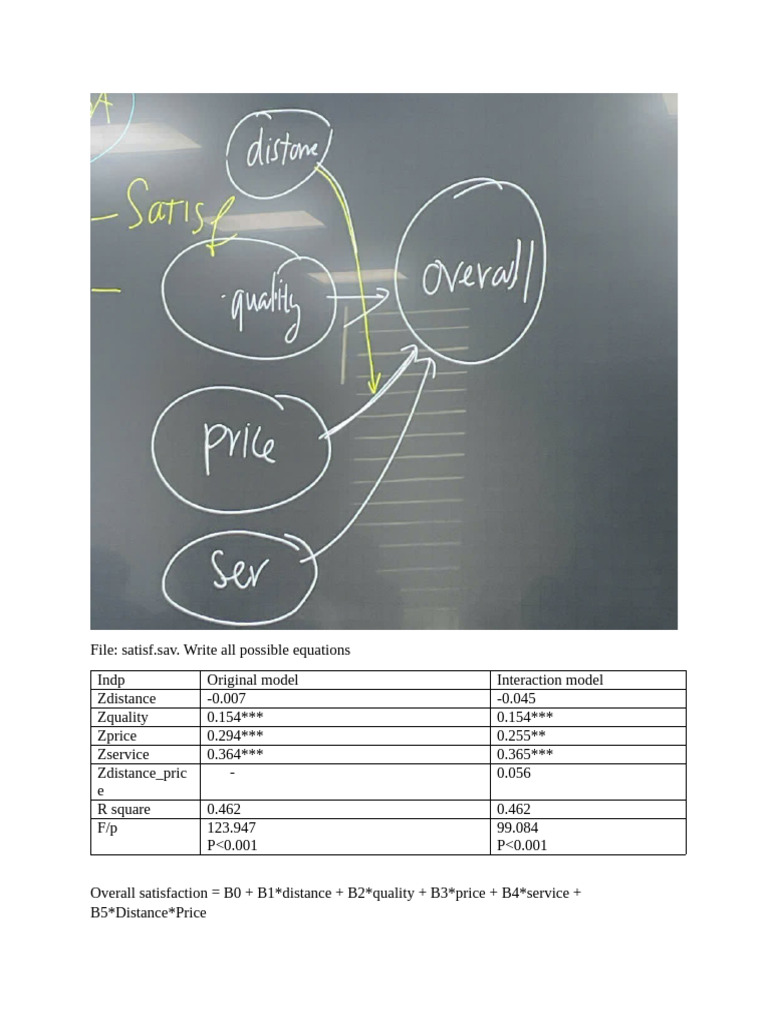 A
distance
Satisf
quality
overall
price
ser
File: satisf.sav. Write all possible equations
Indp Original model Interaction model
Zdistance -0.007 -0.045
Zquality 0.154*** 0.154***
Zprice 0.294*** 0.255**
Zservice 0.364*** 0.365***
Zdistance_pric - 0.056
e
R square 0.462 0.462
F/p 123.947 99.084
P<0.001 P<0.001
Overall satisfaction = B0 + B1*distance + B2*quality + B3*price + B4*service +
B5*Distance*Price